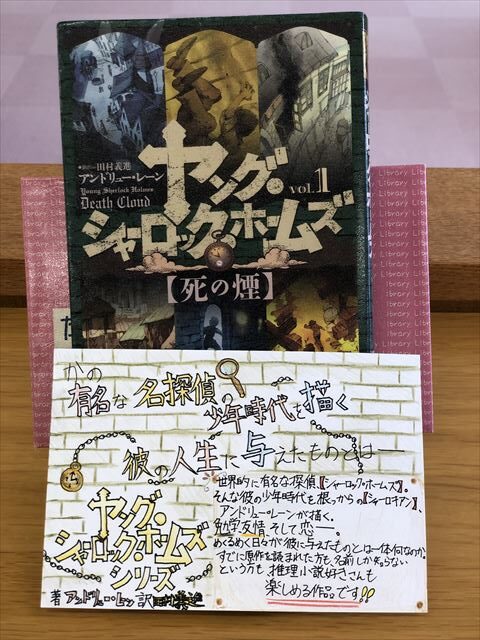 訳 田村義進
アンドリュー・レーン
Young Sherlock Holmes
Death Cloud
ヤング・
vol.1
シャーロック・ホームズ
【死の煙】
Library Library Library
かの
有名な名探偵の
少年時代を描く
彼の人生に与えたものとは―
ヤング・
シャーロック・ホームズ
シリーズ
著 アンドリュー・レーン 訳 田村義進
世界的に有名な探偵【シャーロック・ホームズ】。
そんな彼の少年時代を根っからの【シャーロキアン】、
アンドリュー・レーンが描く。
勉学、友情、そして恋―。
めくるめく日々が彼に与えたものとは一体何なのか。
すでに原作を読まれた方も、名前しか知らない
という方も、推理小説好きさんも
楽しめる作品です!!